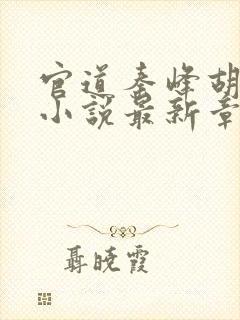 官道秦峰胡
小说最新章
聂晓霞